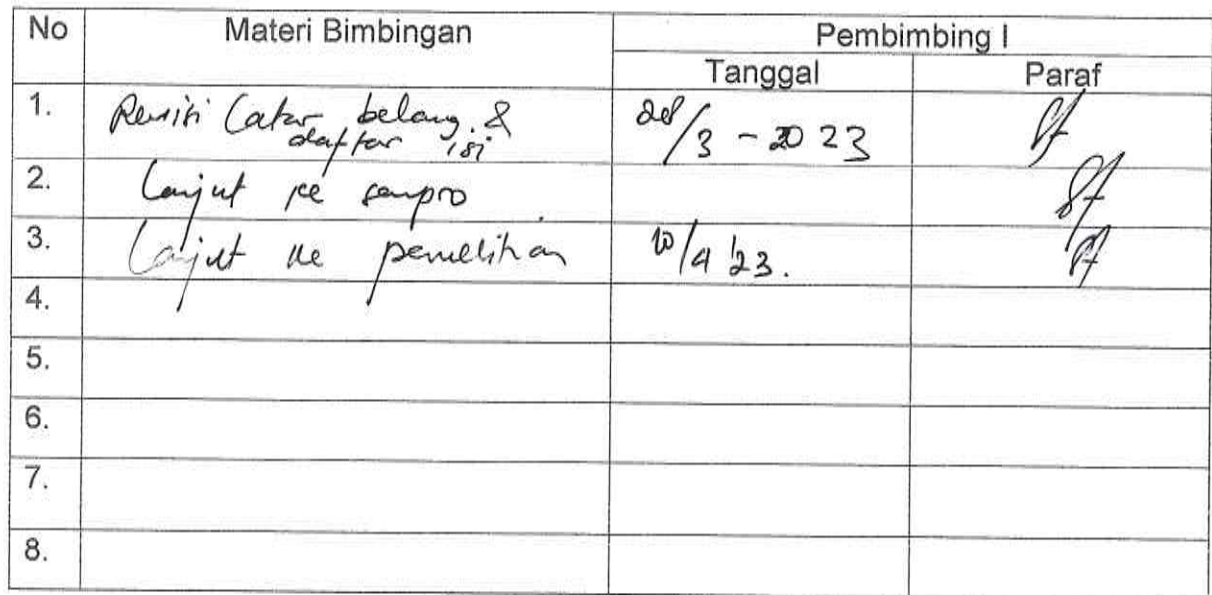 No Materi Bimbingan Pembimbing I
Tanggal Paraf
1. Revisi Latar belang & 28/3 - 2023
daftar isi
2. Lanjut ke sempro
3. Lanjut ke penelitian 10/4 '23.
4.
5.
6.
7.
8.